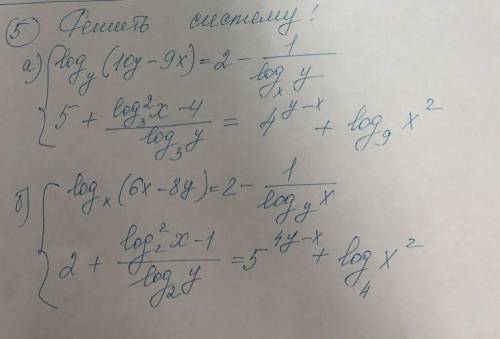 5 Решить систему!
а) log_y (10y - 9x) = 2 - 1/log_x y
5 + (log_3^2 x - 4)/(log_3 y) = 4^(y-x) + log_9 x^2
б) log_x (6x - 8y) = 2 - 1/log_y x
2 + (log_2^2 x - 1)/(log_2 y) = 5^(4y-x) + log_4 x^2